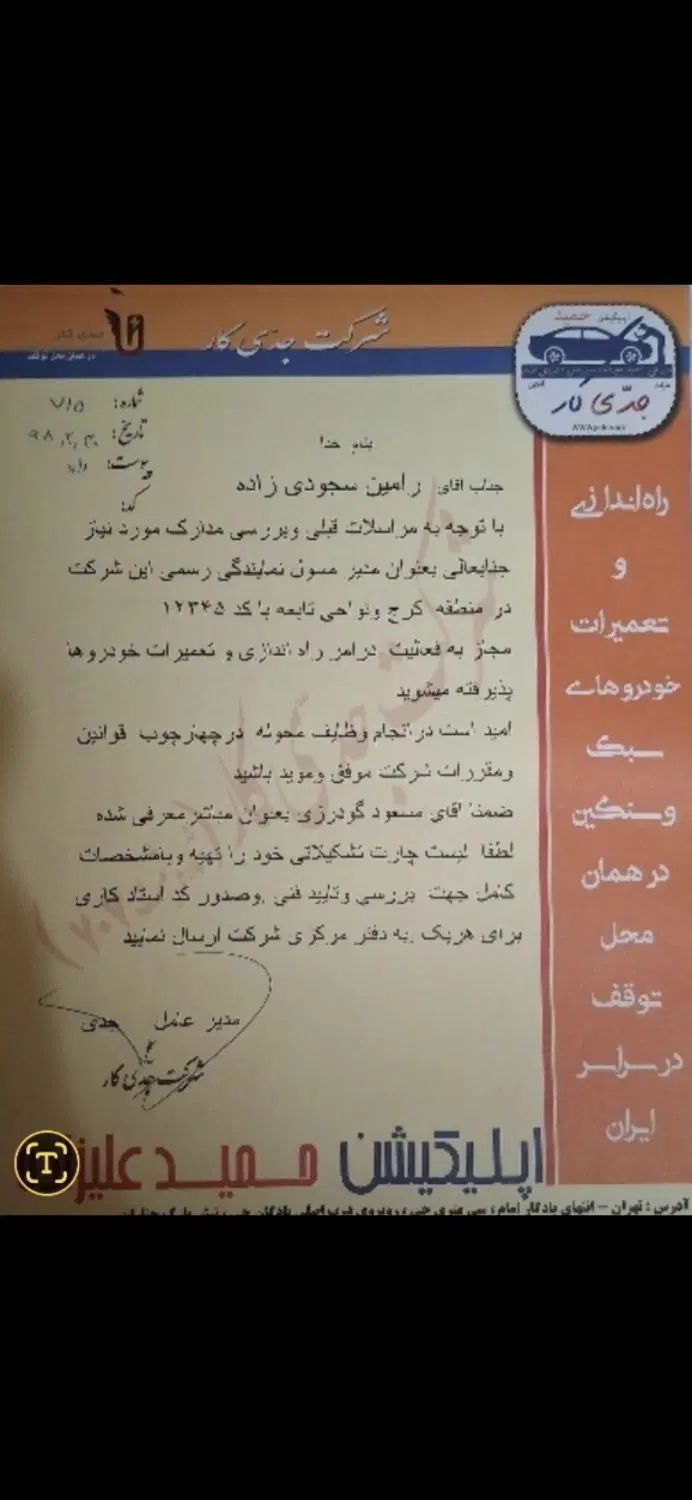 شرکت جدّی کار
شماره: ۷۱۵
تاریخ: ۹۸,۲,۳۰
پیوست:
کد:
بنام خدا
جناب اقای رامین سجودی زاده
با توجه به مراسلات قبلی وبررسی مدارک مورد نیاز
جنابعالی بعنوان مدیر مسول نمایندگی رسمی این شرکت
در منطقه کرج ونواحی تابعه با کد ۱۲۳۴۵
مجاز به فعالیت درامر راه اندازی و تعمیرات خودروها
پذیرفته میشوید
امید است درانجام وظایف محوله درچهارچوب قوانین
ومقررات شرکت موفق وموید باشید
ضمنا اقای مسعود گودرزی بعنوان مباشر معرفی شده
لطفا لیست چارت تشکیلاتی خود را تهیه وبامشخصات
کامل جهت بررسی وتایید فنی وصدور کد استاد کاری
برای هریک به دفتر مرکزی شرکت ارسال نمایید
مدیر عامل جدی
شرکت جدّی کار
جدّی کار
راه‌اندازی
و
تعمیرات
خودروهای
سبک
وسنگین
در همان
محل
توقف
در سراسر
ایران
اپلیکیشن حمید علیز
آدرس : تهران – انتهای یادگار امام ، سی متری جی ، روبروی درب اصلی پادگان جی ، نبش پارک